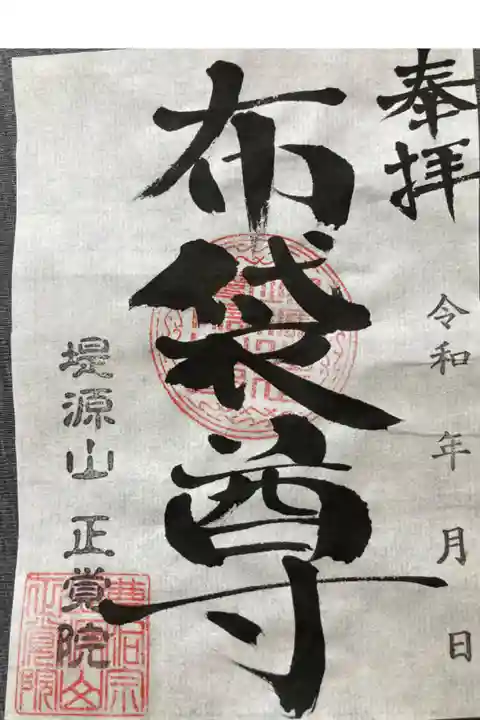 奉拝
令和 年 月 日
布袋尊
堤源山 正賞院